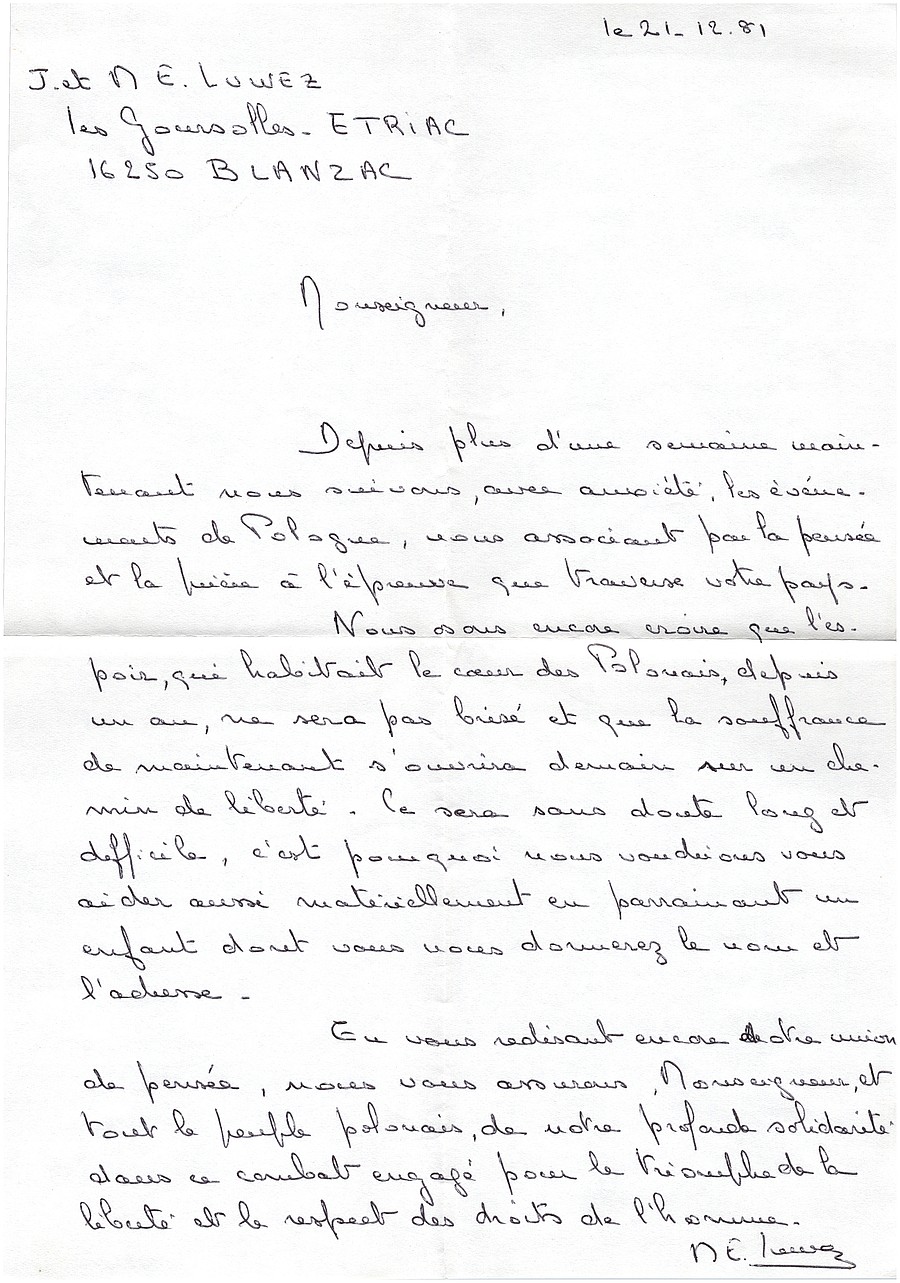 le 21-12.81
J. et M E. LUWEZ
les Goursolles - ETRIAC
16250 BLANZAC
Monseigneur,
Depuis plus d'une semaine main-
tenant nous suivons, avec anxiété, les événe-
ments de Pologne, nous associant par la pensée
et la prière à l'épreuve que traverse votre pays.
Nous osons encore croire que l'es-
poir, qui habitait le cœur des Polonais, depuis
un an, ne sera pas brisé et que la souffrance
de maintenant s'ouvrira demain sur un che-
min de liberté. Ce sera sans doute long et
difficile, c'est pourquoi nous voudrions vous
aider aussi matériellement en parrainant un
enfant dont vous nous donnerez le nom et
l'adresse -
En vous redisant encore notre union
de pensée, nous vous assurons, Monseigneur, et
tout le peuple polonais, de notre profonde solidarité
dans ce combat engagé pour le triomphe de la
liberté et le respect des droits de l'homme.
M E. Luwez